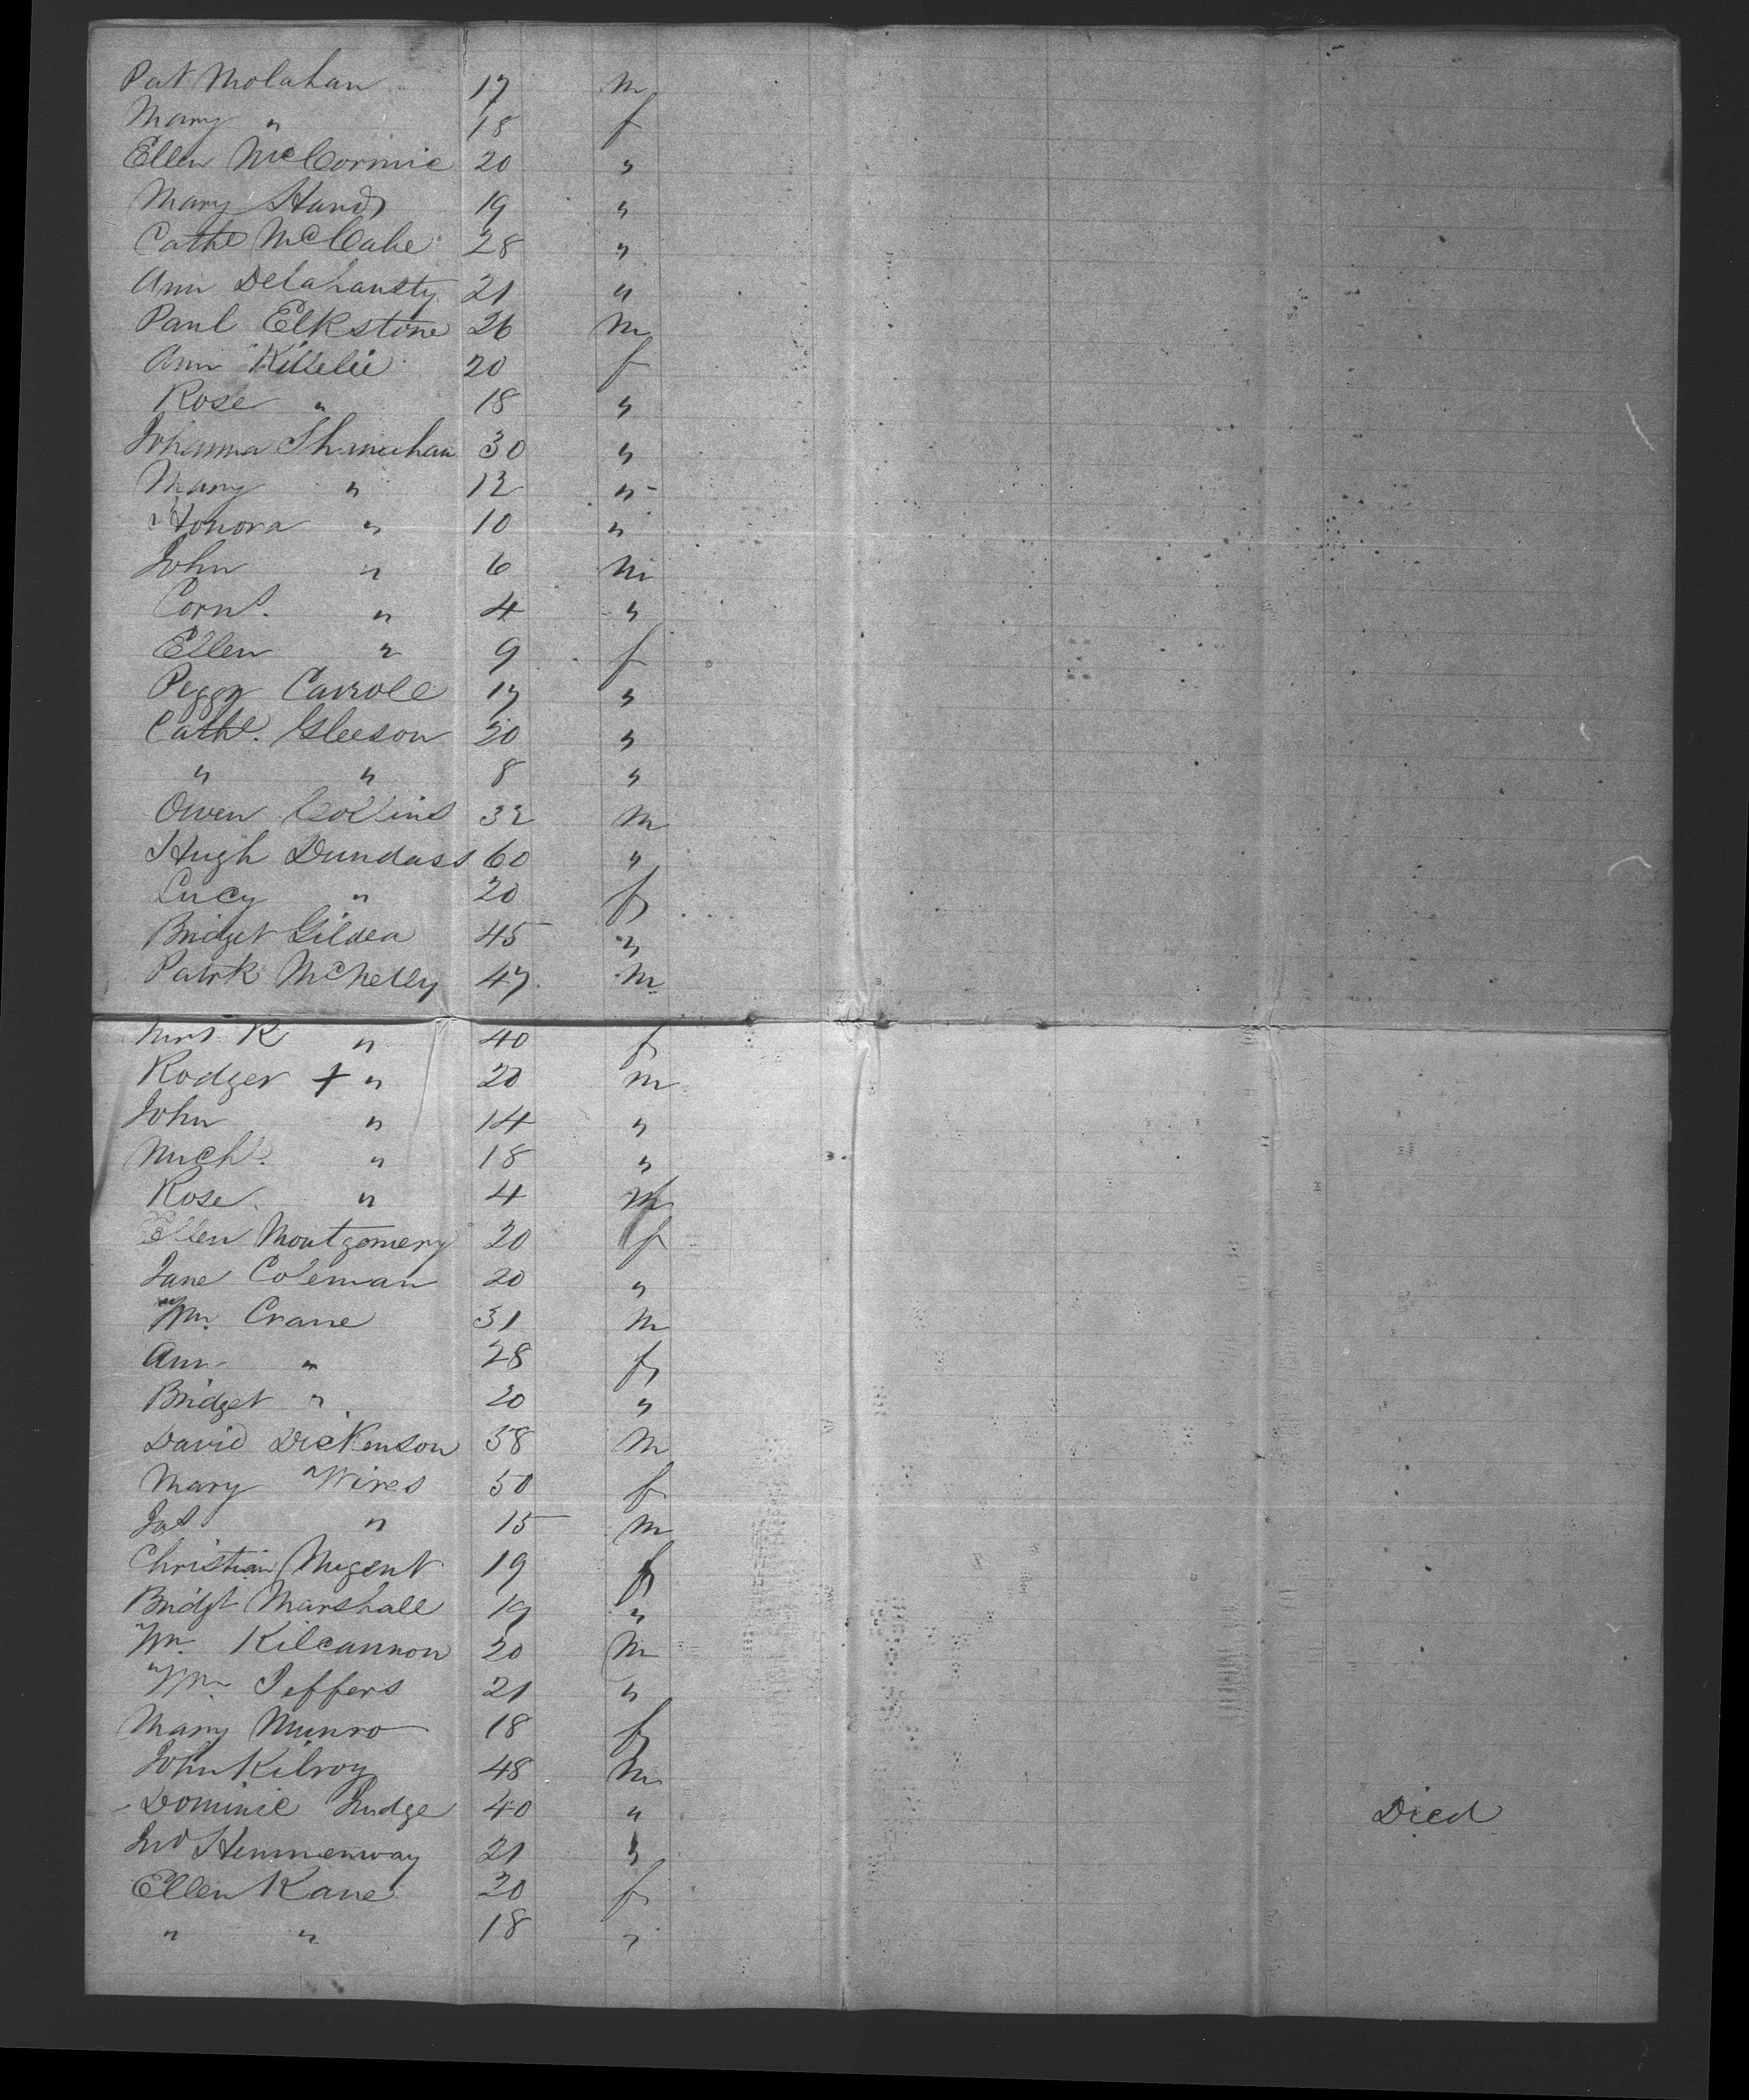 Pat Molahan 17 m
Mary " 18 f
Ellen McCormic 20 "
Mary Hand 19 "
Cathe McCabe 28 "
Ann Delahunty 21 "
Paul Elkstone 26 m
Ann Killelie 20 f
Rose " 18 "
Johanna 30 "
Mary " 12 "
Honora " 10 "
John " 6 m
Cornl. " 4 "
Ellen " 9 f
Peggy Carroll 17 "
Cathe. Gleeson 30 "
" " 8 "
Owen Collins 32 m
Hugh Dundass 60 "
Lucy " 20 f
Bridget Gildea 45 "
Patrk McNelly 47 m
Mrs R " 40 f
Rodger + " 20 m
John " 14 "
Michl. " 18 "
Rose " 4
Ellen Montgomery 20 f
Jane Coleman 20 "
Wm. Crane 31 m
Ann " 28 f
Bridget " 20 "
David Dickenson 38 m
Mary Wires 50 f
Jas " 15 m
Christian Nugent 19 f
Bridgt Marshall 19 "
Wm. Kilcannon 20 m
Wm Jeffers 21 "
Mary Munro 18 f
John Kilroy 48 m
Dominic Judge 40 " Died
Jno Hemmenway 21 "
Ellen Kane 20 f
" " 18 "